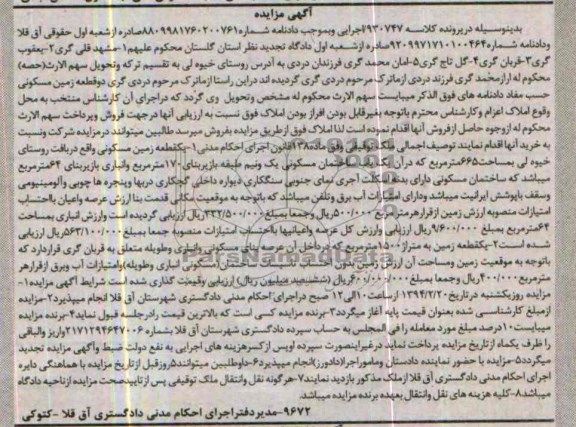 آگهی مزایده
بدینوسیله درپرونده کلاسه ۹۳۰۷۴۷اجرایی وبموجب دادنامه شماره۸۸۰۹۹۸۱۷۶۰۲۰۰۷۶۱صادره ازشعبه اول حقوقی آق قلا
ودادنامه شماره۹۲۰۹۹۷۱۷۱۰۱۰۰۴۶۴صادره ازشعبه اول دادگاه تجدید نظر استان گلستان محکوم علیهم۱-مشهد قلی گری۲-یعقوب
گری۳-قربان گری۴-گل تاج گری۵-امان محمد گری فرزندان دردی به آدرس روستای خیوه لی به تقسیم ترکه وتحویل سهم الارث(حصه)
محکوم له ازمحمد گری فرزند دردی ازماترک مرحوم دردی گری گردیده اند دراین راستا ازماترک مرحوم دردی گری دوقطعه زمین مسکونی
حسب مفاد دادنامه های فوق الذکر میبایست سهم الارث محکوم له مشخص وتحویل وی گردد که دراجرای آن کارشناس منتخب به محل
وقوع املاک اعزام وکارشناس محترم باتوجه بغیرقابل بودن افراز بودن املاک فوق نسبت به ارزیابی آنها درجهت فروش وپرداخت سهم الارث
محکوم له ازوجوه حاصل ازفروش آنها اقدام نموده است لذا املاک فوق ازطریق مزایده بفروش میرسد طالبین میتوانند درمزایده شرکت ونسبت
به خرید آنها اقدام نمایند توصیف اجمالی ملک توقیفی وفق ماده۱۳۸قانون اجرای احکام مدنی۱-یکقطعه زمین مسکونی واقع دربافت روستای
خیوه لی بمساحت۶۶۵مترمربع که درآن یک ساختمان مسکونی یک ونیم طبقه بازیربنای۱۷۰مترمربع وانباری بازیربنای ۶۴مترمربع
میباشد که ساختمان مسکونی دارای بدنه آجری نمای جنوبی سنگکاری دیواره داخلی گچکاری دربها وپنجره ها چوبی وآلومینیومی
وسقف باپوشش ایرانیت میباشد ودارای امتیازات آب برق وتلفن میباشد که باتوجه به موقعیت مکانی قدمت بنا ارزش عرصه واعیان بااحتساب
امتیازات منصوبه ارزش زمین ازقرارهرمترمربع ۵۰۰/۰۰۰ریال وجمعا بمبلغ۳۳۲/۵۰۰/۰۰۰ریال ارزیابی گردیده است وارزش انباری بمساحت
۶۴مترمربع بمبلغ ۹/۶۰۰/۰۰۰ریال ارزیابی وارزش کل عرصه واعیانیها بااحتساب امتیازات منصوبه جمعا بمبلغ ۵۶۳/۱۰۰/۰۰۰ریال ارزیابی
شده است۲-یکقطعه زمین به متراژ۱۵۰۰مترمربع که درداخل آن عرصه بنای مسکونی وانباری وطویله متعلق به قربان گری قراردارد که
باتوجه به موقعیت زمین ومساحت آن ارزش زمین بدون احتساب ساختمان مسکونی انباری وطویله)وامتیازات آب وبرق ازقرارهر
مترمربع۴۰۰/۰۰۰ریال وجمعا بمبلغ۶۰۰/۰۰۰/۰۰۰ریال (ششصد میلیون ریال) ارزیابی وقیمت گذاری شده است شرایط آگهی مزایده۱-
مزایده روزیکشنبه درتاریخ۱۳۹۴/۲/۲۰ازساعت۱۰الی۱۲ صبح دراجرای احکام مدنی دادگستری شهرستان آق قلا انجام میپذیرد۲-مزایده
ازمبلغ کارشناسی شده بعنوان قیمت پایه آغاز میگردد۳-برنده مزایده کسی است که بالاترین قیمت رادرجلسه قبول نماید۴-برنده مزایده
میبایست۱۰درصد مبلغ مورد معامله را فی المجلس به حساب سپرده دادگستری شهرستان آق قلا بشماره ۲۱۷۱۲۹۴۶۴۷۰۰۶واریز والباقی
را ظرف یکماه ازتاریخ مزایده پرداخت نماید درغیراینصورت سپرده اوپس ازکسرهزینه های اجرایی به نفع دولت ضبط وآگهی مزایده تجدید
میگردد۵-مزایده با حضور نماینده دادستان ومامور اجرا(دادورز)انجام میپذیرد۶-داوطلبین میتوانند۵روزقبل ازتاریخ مزایده با هماهنگی دایره
اجرای احکام مدنی دادگستری آق قلا ازملک مذکور بازدید نمایند۷-هرگونه نقل وانتقال ملک توقیفی پس ازتاییدصحت مزایده ازناحیه دادگاه
میباشد۸-کلیه هزینه های نقل وانتقال بعهده برنده مزایده میباشد.
۹۶۷۲-مدیردفتراجرای احکام مدنی دادگستری آق قلا -کتوکی